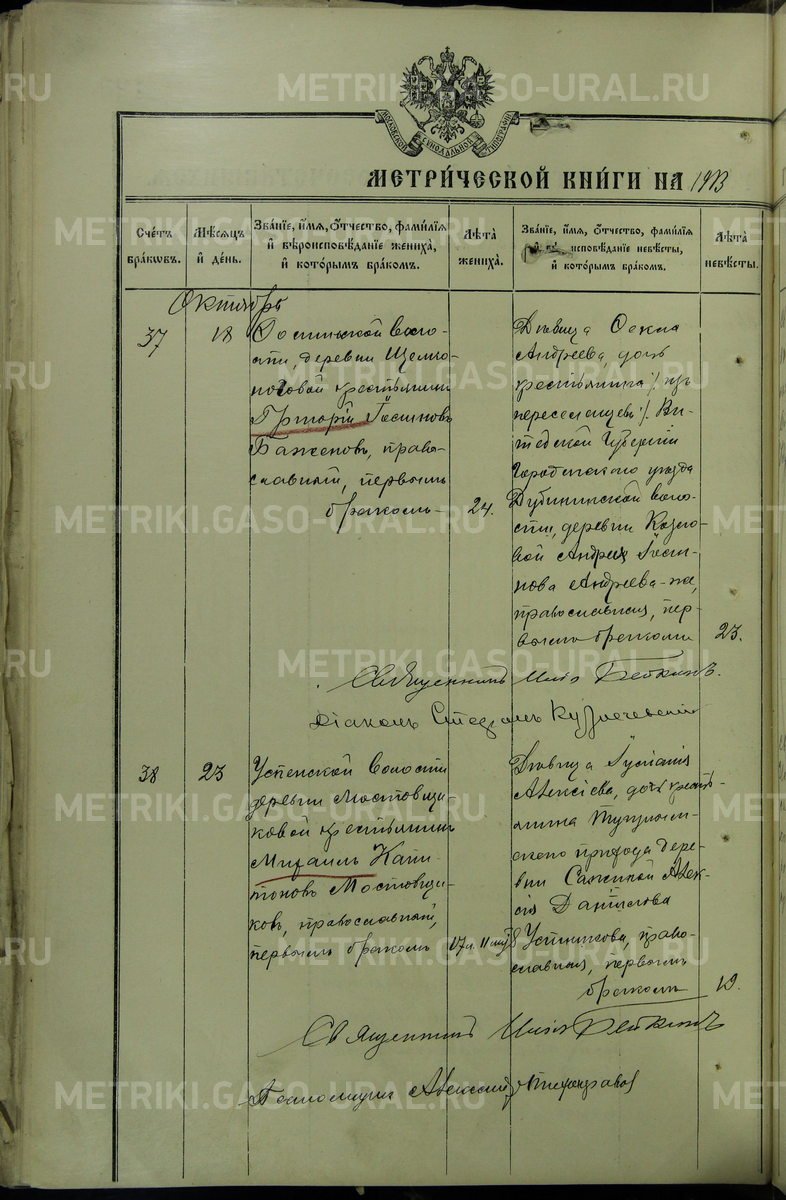 МОСКОВСКОЙ СѴНОДАЛЬНОЙ ТИПОГРАФІИ
МЕТРИ́ЧЕСКОЙ КНИ́ГИ НА 1913
Сче́тъ бра́кωвъ.
Мѣ́сѧцъ и҆ де́нь.
Зва́нїе, и҆́мѧ, ѻ҆́тчество, фами́лїѧ и҆ вѣроисповѣ́данїе жениха̀, и҆ кото́рымъ бра́комъ.
Лѣ́та жениха̀.
Зва́нїе, и҆́мѧ, ѻ҆́тчество, фами́лїѧ и҆ исповѣ́данїе невѣ́сты, и҆ кото́рымъ бра́комъ.
Лѣ́та невѣ́сты.
Октябрь
37
18
волости, деревни
крестьянинъ
Григорій
Баженовъ, право-
славный, первымъ
бракомъ
24.
Дѣвица
Андреева, дочь
крестьянина /. изъ
переселенцевъ ./ Ви-
тебской губерніи
Городокскаго уѣзда
Дубининской воло-
сти, деревни Козло-
вой Андрея
Андреева-же,
православная, пер-
вымъ бракомъ
23.
Священникъ Илія
Діаконъ Стефанъ
38
23
Успенской волости
деревни Мостовщи-
ковой крестьянинъ
Михаилъ Капи-
тоновъ Мостовщи-
ковъ, православный,
первымъ бракомъ
17 л. 11 м.
Дѣвица Іуліанія
Алексіева, дочь кресть-
янина
прихода дере-
вни Алек-
сія Данілова
Устинова, право-
славная, первымъ
бракомъ
19.
Священникъ Илія
Псаломщикъ Алексій
METRIKI.GASO-URAL.RU